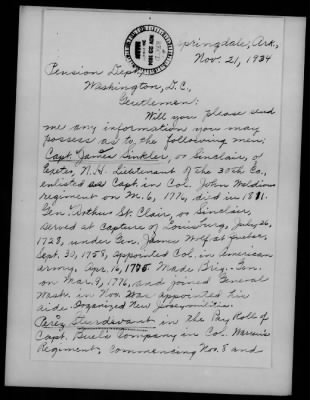 Springdale, Ark,
Nov. 21, 1934
Pension Dept,
Washington, D.C,
Gentlemen:
Will you please send
me any information you may
possess as to the following men;
Capt. James Sinkler, or Sinclair, of
Exeter, N.H. Lieutenant of the 30th Co.,
enlisted as Capt. in Col. John Weldins
regiment on M. 6, 1776, died in 1811.
Gen. Arthur St. Clair, or Sinclair,
served at Capture of Louisburg, July 26,
1728, under Gen. James Wolf at Quebec,
Sept. 30, 1758, appointed Col. in American
army, Apr. 16, 1775 Made Brig. Gen.
on Mar. 9, 1776, and joined General
Wash. in Nov. Was appointed his
aide. Organized New Jersey militia.
Perez Sturdevant in the Pay Roll of
Capt. Buel's Company in Col. Warren's
Regiment, Commencing Nov. 8 and